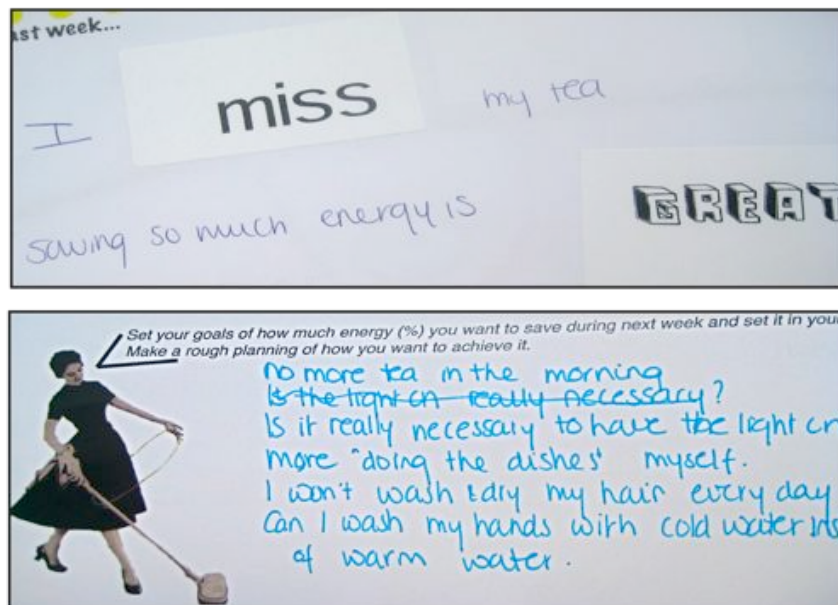 ast week...
I miss my tea
saving so much energy is GREAT
Set your goals of how much energy (%) you want to save during next week and set it in your
Make a rough planning of how you want to achieve it.
no more tea in the morning
Is the light on really necessary?
Is it really necessary to have the light on
more "doing the dishes" myself.
I won't wash & dry my hair every day
Can I wash my hands with cold water ins
of warm water.